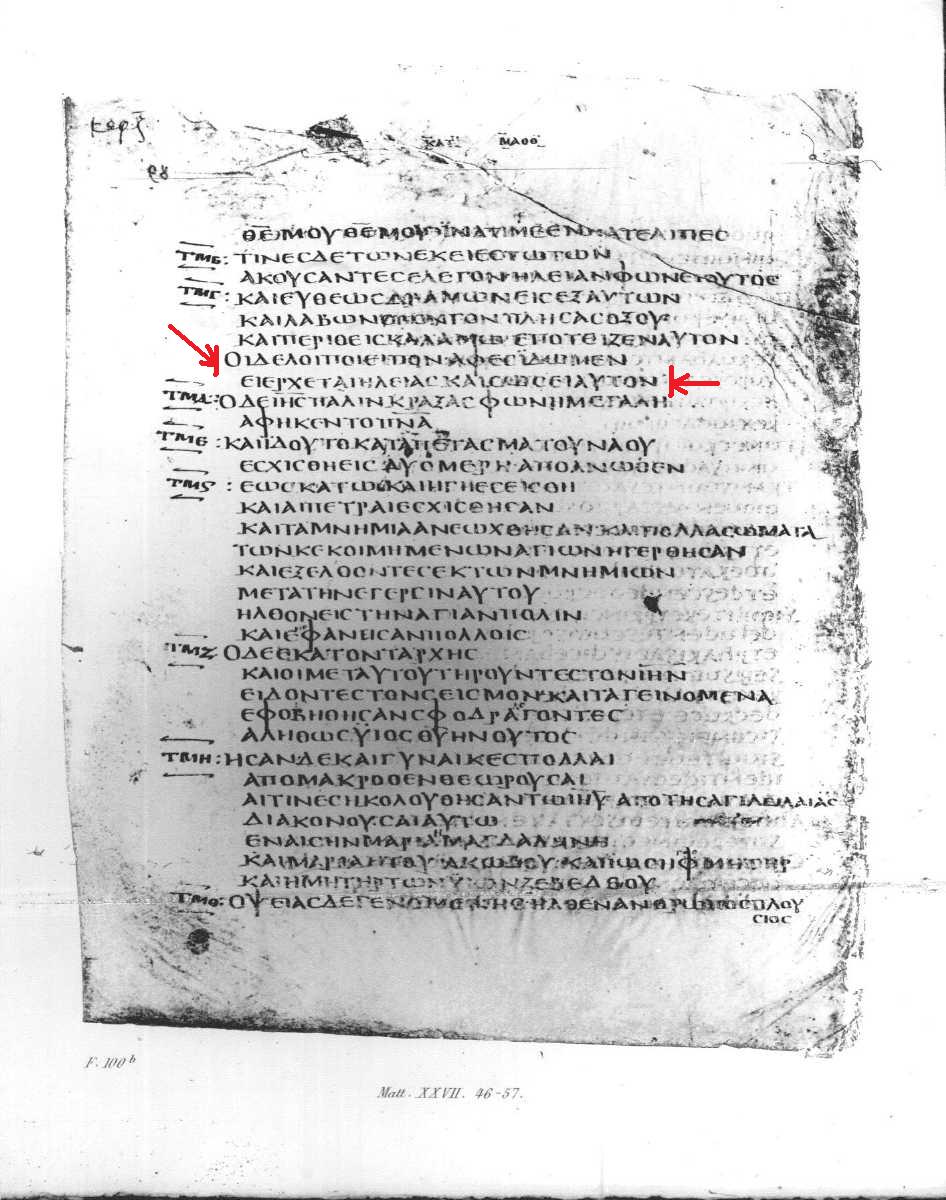 κεφξ
ΚΑΤ ΜΑΘΘ
ΘΕΜΟΥΘΕΜΟΥΙΝΑΤΙΜΕΕΝΚΑΤΕΛΙΠΕϹ
ΤΜΒ: ΤΙΝΕϹΔΕΤΩΝΕΚΕΙΕϹΤΩΤΩΝ
ΑΚΟΥϹΑΝΤΕϹΕΛΕΓΟΝ·ΗΛΕΙΑΝΦΩΝΕΙΟΥΤΟϹ
ΤΜΓ: ΚΑΙΕΥΘΕΩϹΔΡΑΜΩΝΕΙϹΕΞΑΥΤΩΝ
ΚΑΙΛΑΒΩΝϹΠΟΓΓΟΝΠΛΗϹΑϹΟΞΟΥϹ
ΚΑΙΠΕΡΙΘΕΙϹΚΑΛΑΜΩ ΕΠΟΤΕΙΖΕΝΑΥΤΟΝ
ΟΙΔΕΛΟΙΠΟΙΕΙΠΟΝ·ΑΦΕϹΙΔΩΜΕΝ
ΕΙΕΡΧΕΤΑΙΗΛΕΙΑϹΚΑΙϹΩϹΕΙΑΥΤΟΝ
ΤΜΔ: ΟΔΕΙΗϹΠΑΛΙΝΚΡΑΞΑϹΦΩΝΗΜΕΓΑΛΗ
ΑΦΗΚΕΝΤΟΠΝΑ
ΤΜΕ: ΚΑΙΙΔΟΥΤΟΚΑΤΑΠΕΤΑϹΜΑΤΟΥΝΑΟΥ
ΕϹΧΙϹΘΗΕΙϹΔΥΟΜΕΡΗ·ΑΠΟΑΝΩΘΕΝ
ΤΜϚ: ΕΩϹΚΑΤΩ·ΚΑΙΗΓΗΕϹΕΙϹΘΗ
ΚΑΙΑΙΠΕΤΡΑΙΕϹΧΙϹΘΗϹΑΝ
ΚΑΙΤΑΜΝΗΜΙΑΑΝΕΩΧΘΗϹΑΝ·ΚΑΙΠΟΛΛΑϹΩΜΑΤΑ
ΤΩΝΚΕΚΟΙΜΗΜΕΝΩΝΑΓΙΩΝΗΓΕΡΘΗϹΑΝ
ΚΑΙΕΞΕΛΘΟΝΤΕϹΕΚΤΩΝΜΝΗΜΙΩΝ
ΜΕΤΑΤΗΝΕΓΕΡϹΙΝΑΥΤΟΥ
ΗΛΘΟΝΕΙϹΤΗΝΑΓΙΑΝΠΟΛΙΝ
ΚΑΙΕΦΑΝΕΙϹΑΝΠΟΛΛΟΙϹ
ΤΜΖ: ΟΔΕΕΚΑΤΟΝΤΑΡΧΗϹ
ΚΑΙΟΙΜΕΤΑΥΤΟΥΤΗΡΟΥΝΤΕϹΤΟΝΙΗΝ
ΕΙΔΟΝΤΕϹΤΟΝϹΕΙϹΜΟΝ·ΚΑΙΤΑΓΕΙΝΟΜΕΝΑ
ΕΦΟΒΗΘΗϹΑΝϹΦΟΔΡΑΛΕΓΟΝΤΕϹ
ΑΛΗΘΩϹΥΙΟϹΘΥΗΝΟΥΤΟϹ
ΤΜΗ: ΗϹΑΝΔΕΚΑΙΓΥΝΑΙΚΕϹΠΟΛΛΑΙ
ΑΠΟΜΑΚΡΟΘΕΝΘΕΩΡΟΥϹΑΙ
ΑΙΤΙΝΕϹΗΚΟΛΟΥΘΗϹΑΝΤΩΙΗΥ ΑΠΟΤΗϹΓΑΛΕΙΛΑΙΑϹ
ΔΙΑΚΟΝΟΥϹΑΙΑΥΤΩ
ΕΝΑΙϹΗΝΜΑΡΙΑΜΑΓΔΑΛΗΝΗ
ΚΑΙΜΑΡΙΑΗΤΟΥΙΑΚΩΒΟΥ·ΚΑΙΙΩϹΗΦΜΗΤΗΡ
ΚΑΙΗΜΗΤΗΡΤΩΝΥΙΩΝΖΕΒΕΔΕΟΥ
ΤΜΘ: ΟΨΕΙΑϹΔΕΓΕΝΟΜΕΝΗϹ·ΗΛΘΕΝΑΝΘΡΩΠΟϹΠΛΟΥ
ϹΙΟϹ
F. 100b
Matt. XXVII. 46-57.